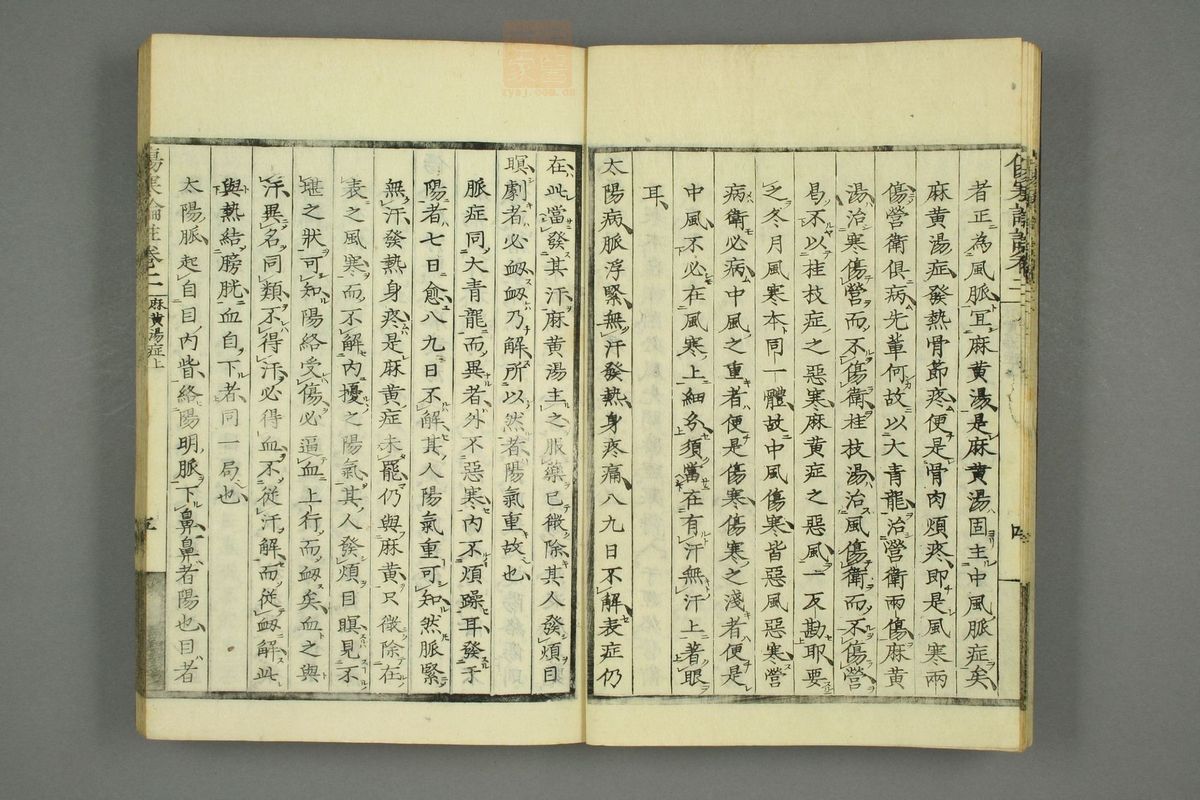 者正為風脈宜麻黃湯是麻黃湯固主中風脈症矣
麻黃湯症發熱骨節疼便是骨肉煩疼即是風寒兩
傷營衛俱病先輩何故以大青龍治營衛兩傷麻黃
湯治寒傷營而不傷衛桂枝湯治風傷衛而不傷營
曷不以桂枝症之惡寒麻黃症之惡風一反勘耶要
之冬月風寒本同一體故中風傷寒皆惡風惡寒營
病衛必病中風之重者便是傷寒傷寒之淺者便是
中風不必在風寒上細分須當在有汗無汗上著眼
耳
太陽病脈浮緊無汗發熱身疼痛八九日不解表症仍
在此當發其汗麻黃湯主之服藥已微除其人發煩目
瞑劇者必衂衂乃解所以然者陽氣重故也
脈症同大青龍而異者外不惡寒內不煩躁耳發于
陽者七日愈八九日不解其人陽氣重可知然脈緊
無汗發熱身疼是麻黃症未罷仍與麻黃只微除在
表之風寒而不解內擾之陽氣其人發煩目瞑見不
堪之狀可知陽絡受傷必逼血上行而衂矣血之與
汗異名同類不得汗必得血不從汗解而從衂解此
與熱結膀胱血自下者同一局也
太陽脈起自目內眥絡陽明脈下鼻鼻者陽也目者
傷寒論註卷二 麻黃湯症上